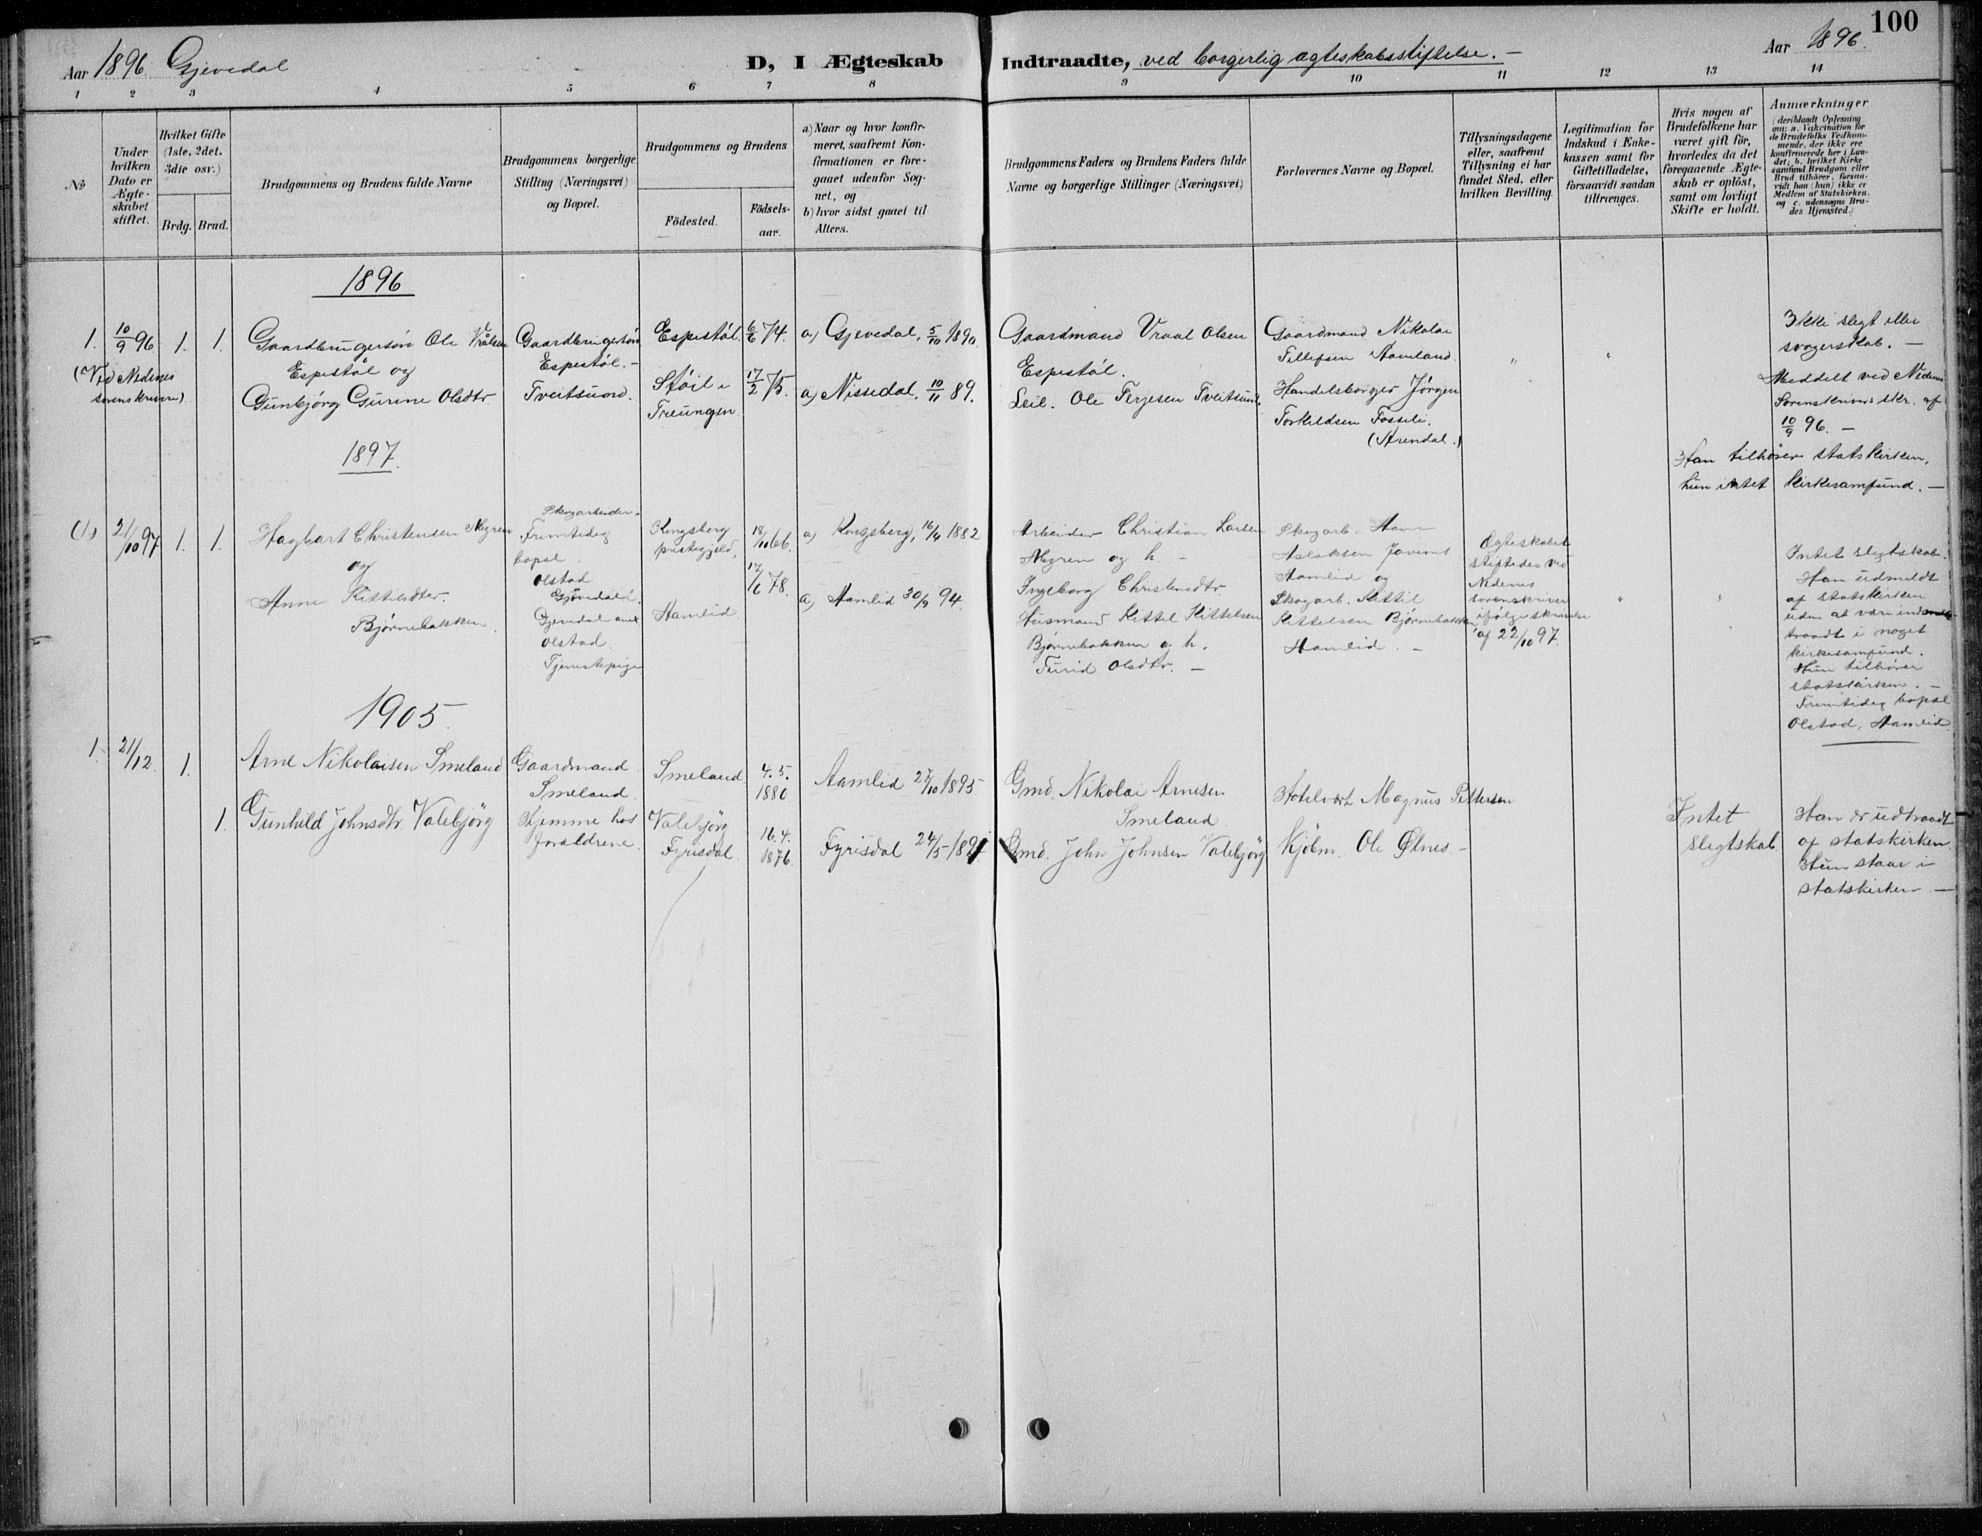 Aar 1896. Gjevedal
D, I Ægteskab Indtraadte, ved borgerlig ægteskabsstiftelse. —
Aar 1896.
100
1 2 3 4 5 6 7 8 9 10 11 12 13 14
No
Under hvilken Dato er Ægteskabet stiftet.
Hvilket Gifte (1ste, 2det, 3die osv.)
Brdg. Brud.
Brudgommens og Brudens fulde Navne
Brudgommens borgerlige Stilling (Næringsvei) og Bopæl.
Brudgommens og Brudens
Födested.
Födsels-aar.
a) Naar og hvor konfirmeret, saafremt Konfirmationen er foregaaet udenfor Sognet, og
b) hvor sidst gaaet til Alters.
Brudgommens Faders og Brudens Faders fulde Navne og borgerlige Stillinger (Næringsvei)
Forlovernes Navne og Bopæl.
Tillysningsdagene eller, saafremt Tillysning ei har fundet Sted, efter hvilken Bevilling.
Legitimation for Indskud i Enkekassen samt for Giftetilladelse, forsaavidt saadan tiltrænges.
Hvis nogen af Brudefolkene har været gift för, hvorledes da det foregaaende Ægteskab er oplöst, samt om lovligt Skifte er holdt.
Anmærkninger
(deriblandt Oplysning om: a. Vakcination for de Brudefolks Vedkommende, der ikke ere konfirmerede her i Landet; b. hvilket Kirkesamfund Brudgom eller Brud tilhörer, forsaavidt han (hun) ikke er Medlem af Statskirken, og c. udensogns Brudes Hjemsted.)
1896
1. 10/9 96 1. 1.
(Ved Nedenes
sorenskriver)
Gaardbrugersøn Ole Vrålsen
Espestøl og
Gunbjørg Gurine Olsdtr
Gaardbrugersøn
Espestøl. —
Tveitsund.
Espestøl.
Støil i
Treungen
6/6 74.
17/2 75.
a) Gjevedal, 5/10 1890.
a) Nissedal, 10/11 89.
Gaardmand Vraal Olsen
Espestøl.
Leil. Ole Terjesen Tveitsund.
Gaardmand Nikolai
Tellefsen Aamland.
Handelsborger Jørgen
Torkildsen Fosseli.
(Arendal.)
" "
Ikke slegt eller
svogerskab. —
Meddelt ved Nedenes
Sorenskrivers skr. af
10/9 96. —
Han tilhører statskirken,
hun intet kirkesamfund. —
1897.
(1) 21/10 97 1. 1.
Hagbart Christensen Myren
og
Anne Kittilsdter.
Bjørnebakken
Skogarbeider.
Fremtidig
bopæl.
Olstad
Gjevedal anex
Olstad.
Tjenestepige
Kongsberg
prestegjeld,
Aamlid.
18/10 66.
17/6 78.
a) Kongsberg, 16/4 1882
a) Aamlid 30/9 94.
Arbeider Christian Larsen
Myren og h. —
Ingeborg Christensdtr.
Husmand Kittel Kittelsen
Bjørnebakken og h.
Turid Olsdtr. —
Skogarb.
Aslaksen
Aamlid og
Skogarb. Kittil
Kittelsen Bjørnebakken
Aamlid. —
Ægteskabet
stiftedes ved
Nedenes
sorenskriver
ifølge skrivelse
af 22/10 97.
" "
Intet slegtskab.
Han udmeldt
af statskirken
uden at være ind-
traadt i noget
kirkesamfund.
Hun tilhører
statskirken. —
Fremtidig bopæl
Olstad, Aamlid.
1905.
1. 21/12. 1.
Arne Nikolaisen Smeland
1. Gunhild Johnsdtr. Valebjørg
Gaardmand
Smeland.
Hjemme hos
forældrene.
Smeland
Valebjørg
Fyrisdal.
4. 5.
1880
16. 4.
1876
Aamlid 27/10 1895
Fyrisdal 24/5 189
Gmd. Nikolai Arnesen
Smeland.
Gmd. John Johnsen Valebjørg
Hotelvært Magnus Pettersen
Kjøbm. Ole Ølnes —
Intet
slegtskab
Han er udtraadt
af statskirken.
Hun staar i
statskirken —